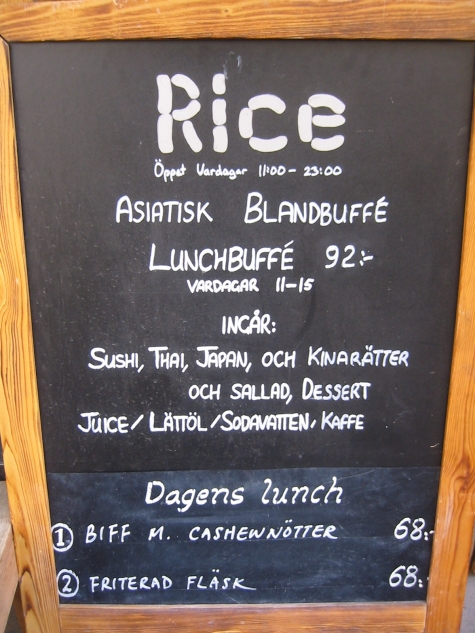 Rice
Öppet Vardagar 11:00 - 23:00
ASIATISK BLANDBUFFÉ
LUNCHBUFFÉ 92:-
VARDAGAR 11-15
INGÅR:
SUSHI, THAI, JAPAN, OCH KINARÄTTER
OCH SALLAD, DESSERT
JUICE/LÄTTÖL/SODAVATTEN, KAFFE
Dagens lunch
① BIFF M. CASHEWNÖTTER 68:-
② FRITERAD FLÄSK 68:-